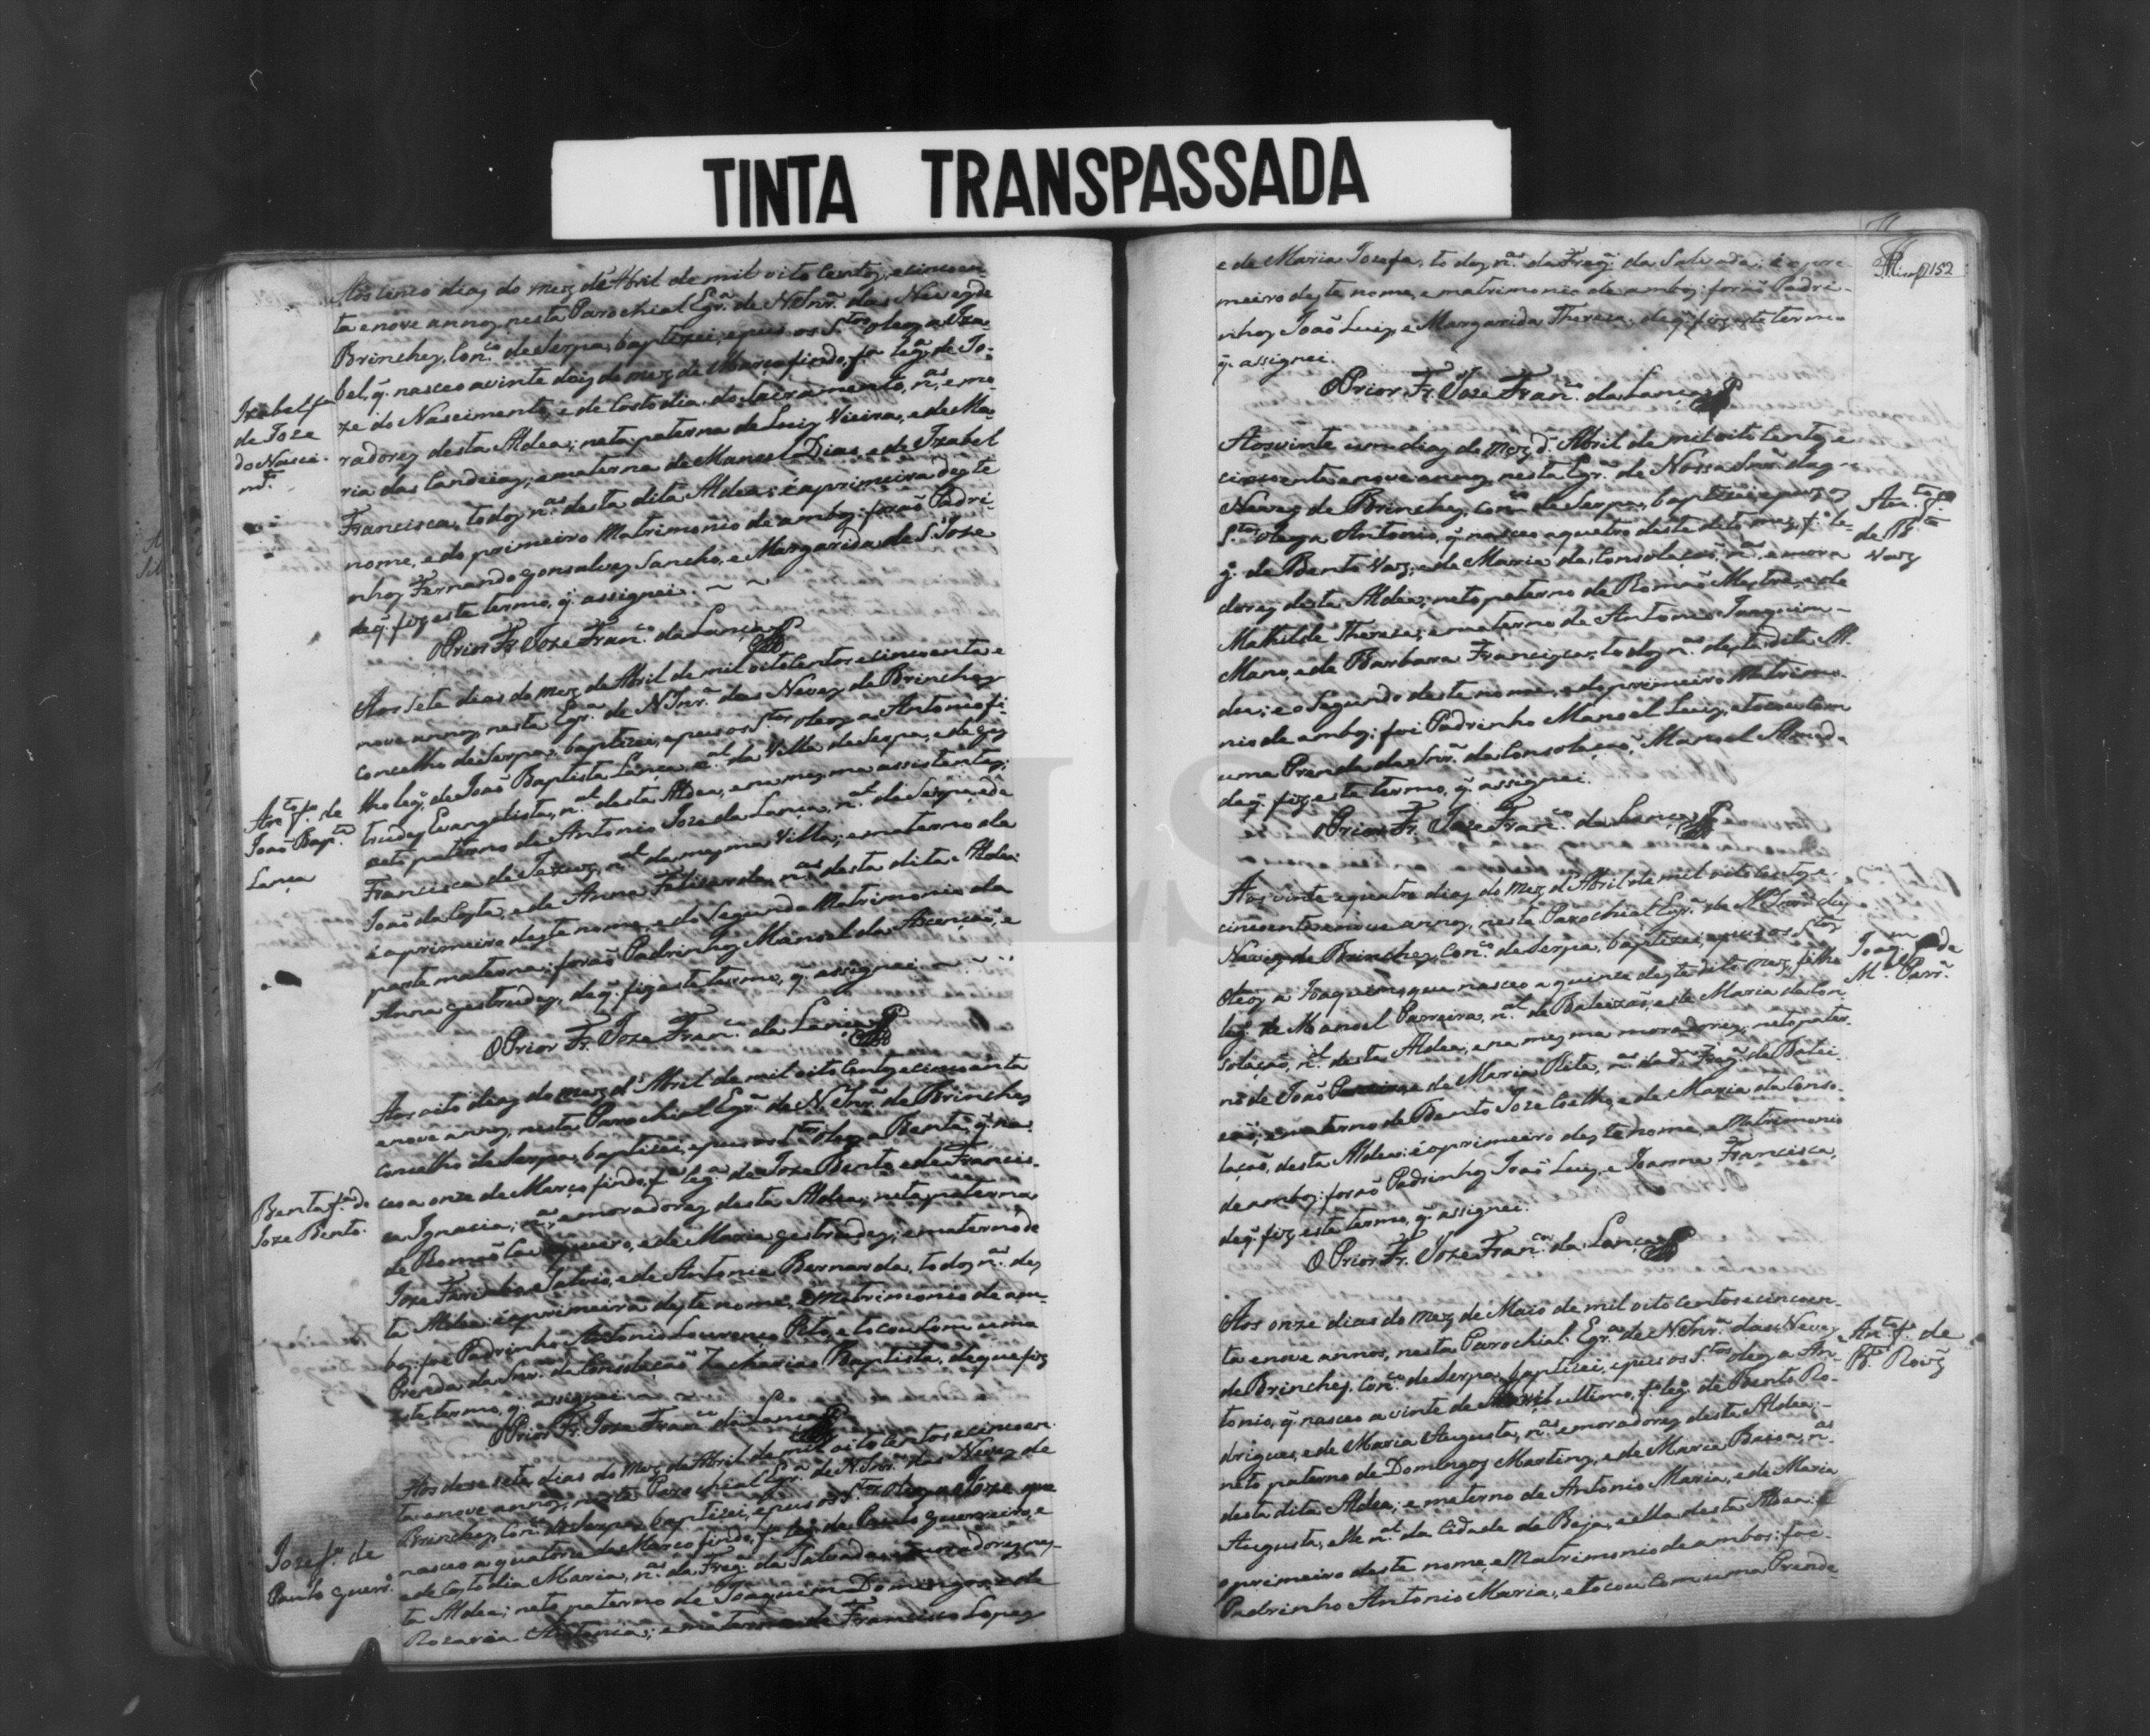 TINTA TRANSPASSADA
Aos cinco dias do mez de Abril de mil oito centos, e cincoen-
ta e nove annos, nesta Parochial Egrª. de N. Snrª. das Neves de
Brinches, Conº. de Serpa, baptizei, e pus os Stos oleos a Iza-
bel, q̃ nasceo a vinte dois do mez de Março findo, fª legª. de Jo-
ze do Nascimento, e de Costodia do Sacramento, nas. e mo-
radores desta Aldea; neta paterna de Luiz Vieira, e de Ma-
ria das Candeias; e materna de Manoel Dias, e de Izabel
Francisca, todos nas. desta dita Aldea: é a primeira deste
nome, e do primeiro Matrimonio de ambos: forão Padri-
nhos Fernando Gonsalves Sancho, e Margarida de S. Joze
de q̃ fiz este termo, q̃ assignei.
O Prior Fr. Joze Franco. da Lança
Izabel fª
de Joze
do Nasci-
mto.
Aos sete dias do mez de Abril de mil oito centos e cincoenta e
nove annos, nesta Egrª. de N. Snrª. das Neves de Brinches
concelho de Serpa, baptizei, e pus os Stos oleos a Antonio fi-
lho legº. de João Baptista Lança nal. da Villa de Serpa, e de Ger
trudes Evangelista, nal. desta Aldea, e na mesma assistentes;
neto paterno de Antonio Joze da Lança, nal. de Serpa, e de
Francisca de nal. da mesma Villa; e materno de
João da Costa, e de Anna Felisarda, nas. desta dita Aldea:
é o primeiro deste nome, e do segundo Matrimonio da
parte materna: forão Padrinhos Manoel da Ascenção, e
Anna Gertrudes, de q̃ fiz este termo, q̃ assignei.
O Prior Fr. Joze Franco. da Lança
Anto. fº de
João Bapta.
Lança
Aos oito dias do mez d'Abril de mil oito centos e cincoenta
e nove annos, nesta Parochial Egrª. de N. Snrª. de Brinches
concelho de Serpa, baptizei, e pus os Stos oleos a Benta, q̃ nas
ceo a onze de Março findo, fª legª. de Joze Bento, e de Francis-
ca Ignacia, nas. e moradores desta Aldea; neta paterna
de Romão e de Maria Gertrudes; e materno de
Joze e de Antonia Bernarda, todos nas. des
ta Aldea: é a primeira deste nome, e Matrimonio de am-
bos: foi Padrinho Antonio Lourenço e tocou com uma
Prenda da Snrª. da Consolação Zacharias Baptista, de que fiz
este termo, q̃ assignei.
O Prior Fr. Joze Franco. da Lança
Benta fª. de
Joze Bento.
Aos desesete dias do mez de Abril de mil oito centos e cincoen-
ta e nove annos, nesta Parochial Egrª. de N. Snrª. das Neves de
Brinches, Conº. de Serpa, baptizei, e pus os Stos oleos a Joze que
nasceo a quatorze de Março findo, fº legº. de Paulo Guerreiro, e
e de Costodia Maria, nas. da Fregª. da Salvada, e moradores nes-
ta Aldea; neto paterno de Joaquim Domingos, e de
Rozaria e materno de Francisco Lopes
Joze fº. de
Paulo Guerrº.
152
e de Maria Jozefa, todos nas. da Fregª. da Salvada: é o pri-
meiro deste nome, e matrimonio de ambos: forão Padri-
nhos João Luiz, e Margarida Thereza, de q̃ fiz este termo
q̃ assignei.
O Prior Fr. Joze Franco. da Lança
Aos vinte e um dias do mez d'Abril de mil oito centos e
cincoenta e nove annos, nesta Egrª. de Nossa Snrª. das
Neves de Brinches, Conº. de Serpa, baptizei, e pus os
Stos oleos a Antonio, q̃ nasceo a quatro deste dito mez, fº le-
gº. de Bento Vaz, e de Maria da Consolação, nas. e mora
dores desta Aldea; neto paterno de Romão Mestre, e de
Mathilde Thereza; e materno de Antonio Joaquim
Mano, e de Barbara Francisca, todos nas. desta dita Al-
dea; é o Segundo deste nome, e do primeiro Matrimo-
nio de ambos: foi Padrinho Manoel Luiz, e tocou com
uma Prenda da Snrª. da Consolação, Manoel
de q̃ fiz este termo, q̃ assignei.
O Prior Fr. Joze Franco. da Lança
Anto. fº
de Bto.
Vaz
Aos vinte e quatro dias do mez d'Abril de mil oito centos e
cincoenta e nove annos, nesta Parochial Egrª. de N. Snrª. das
Neves de Brinches, Conº. de Serpa, baptizei, e pus os Stos
Oleos a Joaquim, que nasceo a quinze deste dito mez, filho
legº. de Manoel Parreira, nal. de Baleizão, e de Maria da Con-
solação, nal. desta Aldea, e na mesma moradores; neto pater-
no de João Parreira, e de Maria Rita, nas. da dª Fregª. de Balei-
zão; e materno de Bento Joze Coelho, e de Maria da Conso-
lação, desta Aldea: é o primeiro deste nome, e Matrimonio
de ambos: forão Padrinhos João Luiz, e Joanna Francisca,
de q̃ fiz este termo, q̃ assignei.
O Prior Fr. Joze Franco. da Lança
Joaqm. fº de
Mel. Parrª.
Aos onze dias do mez de Maio de mil oito centos e cincoen-
ta e nove annos, nesta Parochial Egrª. de N. Snrª. das Neves
de Brinches, Conº. de Serpa, baptizei, e pus os Stos oleos a An-
tonio, q̃ nasceo a vinte de Abril ultimo, fº legº. de Bento Ro-
drigues, e de Maria Augusta, nas. e moradores desta Aldea;
neto paterno de Domingos Martins, e de Maria Baiôa, nas.
desta dita Aldea; e materno de Antonio Maria, e de Maria
Augusta, elle nal. da Cidade de Beja, e ella desta Aldea: é
o primeiro deste nome, e Matrimonio de ambos: foi
Padrinho Antonio Maria, e tocou com uma Prenda
Anto. fº. de
Bto. Roiz̃
LS